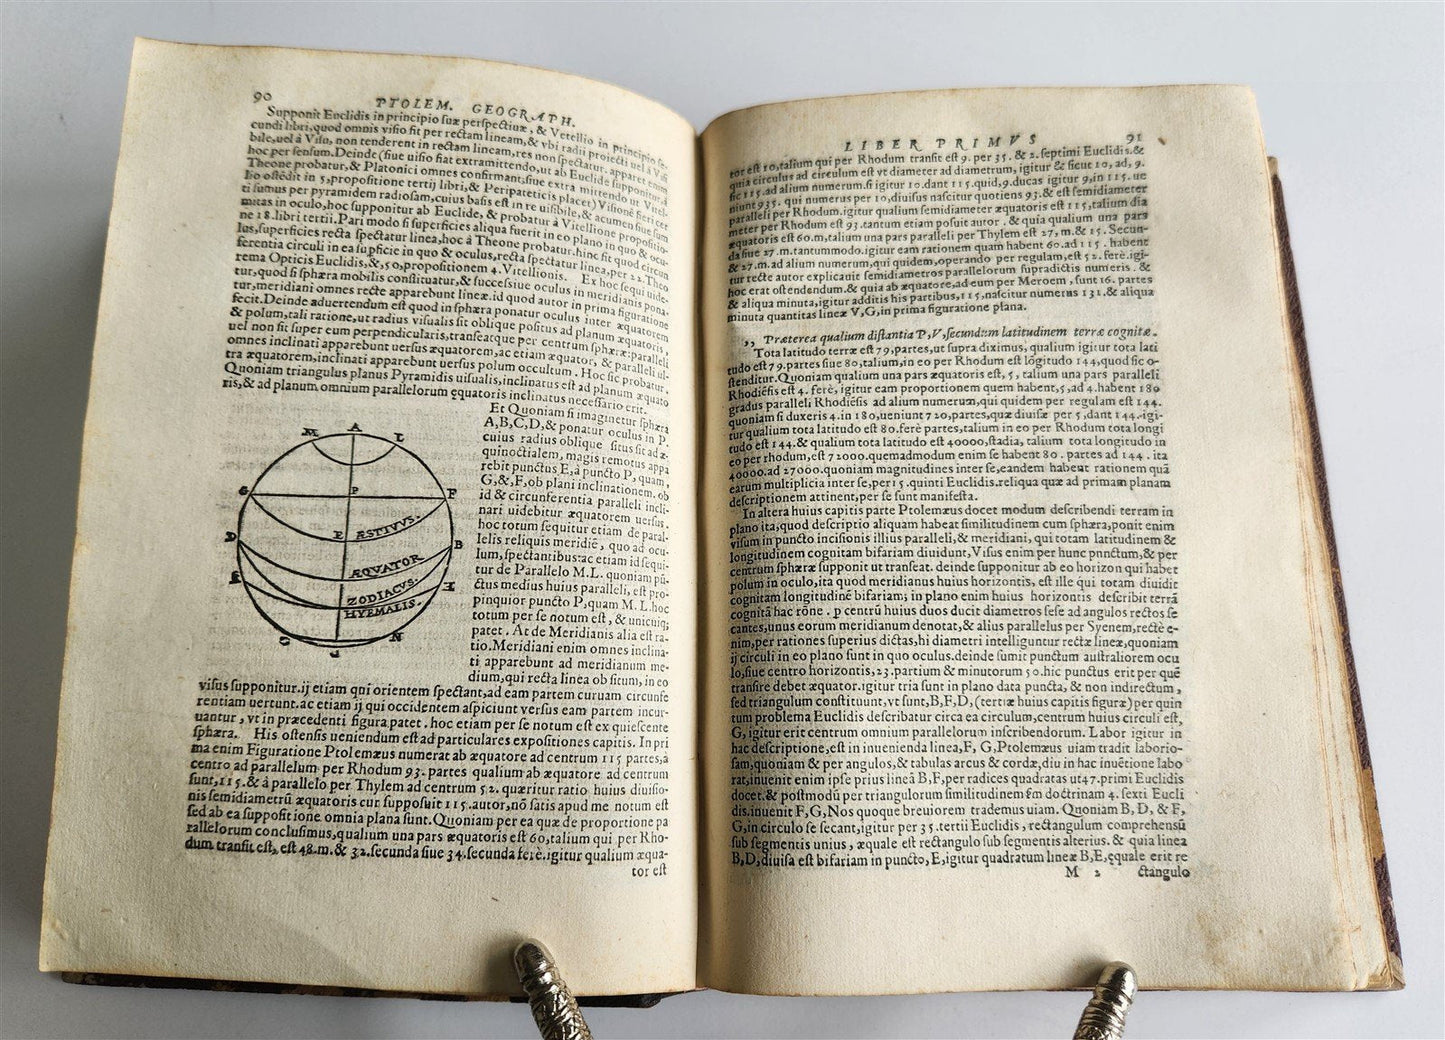 90
PTOLEM. GEOGRAPH.
Supponit Euclidis in principio suæ perspectiuæ, & Vetellio in principio se-
cundi libri, quod omnis visio fit per rectam lineam, & vbi radii proiecti uel à Visi
bile, uel à Visu, non tenderent in rectam lineam, res non spectatur. apparet enim
hoc per sensum. Deinde (siue uisio fiat extramittendo, ut ab Euclide supponitur, à
Theone probatur, & Platonici omnes confirmant, siue extra mittendo ut Vitel-
lio ostēdit in 5, propositione tertij libri, & Peripateticis placet) Visionē fieri cer
ti sumus per pyramidem radiosam, cuius basis est in re uisibile, & acumen siue sum
mitas in oculo, hoc supponitur ab Euclide, & probatur à Vitellione propositio-
ne 18. libri tertii. Pari modo si superficies aliqua fuerit in eo plano in quo & ocu-
lus, superficies recta spectatur linea, hoc à Theone probatur. hinc fit quod circun
ferentia circuli in ea supficie in quo & oculus, recta spectatur linea, per 22. Theo
rema Opticis Euclidis, &, 50, propositionem 4. Vitellionis. Ex hoc sequi uide-
tur, quod si sphæra mobilis constituatur, & successiue oculus in meridianis pona-
tur, meridiani omnes recte apparebunt lineæ. id quod autor in prima figuratione
fecit. Deinde aduertendum est quod in sphæra ponatur oculus inter æquatorem
& polum, tali ratione, ut radius visualis sit oblique positus ad planum æquatoris,
uel non sit super eum perpendicularis, transeatque per centrum sphæræ: paralleli
omnes inclinati apparebunt uersus æquatorem, ac etiam æquator, & paralleli ul-
tra æquatorem, inclinati apparebunt uersus polum occultum. Hoc sic probatur.
Quoniam triangulus planus Pyramidis uisualis, inclinatus est ad planum æquato
ris, & ad planum omnium parallelorum equatoris inclinatus necessario erit.
Et Quoniam si imaginetur sphæra
A, B, C, D, & ponatur oculus in P.
cuius radius oblique situs sit ad æ-
quinoctialem, magis remotus appa
rebit punctus E, à puncto P, quam,
G, &, F, ob plani inclinationem. ob
id & circunferentia paralleli incli-
nari uidebitur æquatorem uersus.
hoc totum sequitur etiam de paral-
lelis reliquis meridiē, quo ad ocu-
lum, spectantibus: ac etiam id sequi-
tur de Parallelo M. L. quoniam pū-
ctus medius huius paralleli, est pro-
pinquior puncto P, quam M. L. hoc
totum per se notum est, & unicuiq;
patet. At de Meridianis alia est ra-
tio. Meridiani enim omnes inclina-
ti apparebunt ad meridianum me-
dium, qui recta linea ob situm, in eo
M A L
G P F
E ÆSTIVVS.
D B
ÆQVATOR
ZODIACVS.
HYEMALIS.
N
visus supponitur. ij etiam qui orientem spectant, ad eam partem curuam circunfe
rentiam uertunt. ac etiam ij qui occidentem aspiciunt versus eam partem incur-
uantur, vt in præcedenti figura patet. hoc etiam per se notum est ex quiescente
sphæra. His ostensis ueniendum est ad particulares expositiones capitis. In pri
ma enim Figuratione Ptolemæus numerat ab æquatore ad centrum 115 partes, à
centro ad parallelum per Rhodum 93. partes qualium ab æquatore ad centrum
sunt, 115. & à parallelo per Thylem ad centrum 52. quæritur ratio huius diuisio-
nis semidiametrū æquatoris cur supposuit 115. autor, nō satis apud me notum est
sed ab ea suppositione omnia plana sunt. Quoniam per ea quæ de proportione pa
rallelorum conclusimus, qualium una pars æquatoris est 60, talium qui per Rho-
dum transit est, est 48. m. & 32. secunda siue 34. secunda ferè. igitur qualium æqua-
tor est
LIBER PRIMVS
91
tor est 10, talium qui per Rhodum transit est 9. per 35. & 2. septimi Euclidis. &
quia circulus ad circulum est vt diameter ad diametrum, igitur & sicut 10, ad, 9.
sic 115. ad alium numerum. si igitur 10. dant 115. quid, 9. ducas igitur 9, in 115. ue
niunt 935. qui numerus per 10, diuisus nascitur quotiens 93. & est semidiameter
paralleli per Rhodum. igitur qualium semidiameter æquatoris est 115, talium dia
meter per Rhodum est 93. tantum etiam posuit autor. & quia qualium una pars
æquatoris est 60. m, talium una pars paralleli per Thylem est 27, m. & 15. Secun-
da siue 27. m. tantummodo. igitur eam rationem quam habent 60. ad 115. habent
& 27. m. ad alium numerum, qui quidem, operando per regulam, est 52. ferè. igi-
tur recte autor explicauit semidiametros parallelorum supradictis numeris. &
hoc erat ostendendum. & quia ab æquatore, ad eum per Meroem, sunt 16. partes
& aliqua minuta, igitur additis his partibus, 115, nascitur numerus 131. & aliqua
minuta quantitas lineæ V, G, in prima figuratione plana.
,, Præterea qualium distantia P, V, secundum latitudinem terræ cognitæ.
Tota latitudo terræ est 79, partes, ut supra diximus, qualium igitur tota lati
tudo est 79. partes siue 80, talium, in eo per Rhodum est lōgitudo 144, quod sic o-
stenditur. Quoniam qualium una pars æquatoris est, 5, talium una pars paralleli
Rhodiēsis est 4. ferè, igitur eam proportionem quem habent, 5, ad 4. habent 180
gradus paralleli Rhodiēsis ad alium numerum, qui quidem per regulam est 144.
quoniam si duxeris 4. in 180, ueniunt 720, partes, quæ diuisæ per 5, dant 144. igi-
tur qualium tota latitudo est 80. ferè partes, talium in eo per Rhodum tota longi
tudo est 144. & qualium tota latitudo est 40000, stadia, talium tota longitudo in
eo per rhodum, est 72000. quemadmodum enim se habent 80. partes ad 144. ita
40000. ad 27000. quoniam magnitudines inter se, eandem habent rationem quā
earum multiplicia inter se, per 15. quinti Euclidis. reliqua quæ ad primam planam
descriptionem attinent, per se sunt manifesta.
In altera huius capitis parte Ptolemæus docet modum describendi terram in
plano ita, quod descriptio aliquam habeat similitudinem cum sphæra, ponit enim
visum in puncto incisionis illius paralleli, & meridiani, qui totam latitudinem &
longitudinem cognitam bifariam diuidunt, Visus enim per hunc punctum, & per
centrum sphæræ supponit ut transeat. deinde supponitur ab eo horizon qui habet
polum in oculo, ita quod meridianus huius horizontis, est ille qui totam diuidit
cognitam longitudinē bifariam; in plano enim huius horizontis describit terrā
cognitā hac rōne. p centrū huius duos ducit diametros sese ad angulos rectos se
cantes, unus eorum meridianum denotat, & alius parallelus per Syenem, rectè e-
nim, per rationes superius dictas, hi diametri intelliguntur rectæ lineæ, quoniam
ij circuli in eo plano sunt in quo oculus. deinde sumit punctum australiorem ocu
lo, siue centro horizontis, 23. partium & minutorum 50. hic punctus erit per quē
transire debet æquator. igitur tria sunt in plano data puncta, & non indirectum,
sed triangulum constituunt, vt sunt, B, F, D, (tertiæ huius capitis figuræ) per quin
tum problema Euclidis describatur circa ea circulum, centrum huius circuli est,
G, igitur erit centrum omnium parallelorum inscribendorum. Labor igitur in
hac descriptione, est in inuenienda linea, F, G, Ptolemæus uiam tradit laborio-
sam, quoniam & per angulos, & tabulas arcus & cordæ, diu in hac inuētione labo
rat, inuenit enim ipse prius lineā B, F, per radices quadratas ut 47. primi Euclidis
docet. & postmodū per triangulorum similitudinem s̄m doctrinam 4. sexti Eucli
dis. inuenit F, G, Nos quoque breuiorem trademus uiam. Quoniam B, D, & F,
G, in circulo se secant, igitur per 35. tertii Euclidis, rectangulum comprehensū
sub segmentis unius, æquale est rectangulo sub segmentis alterius. & quia linea
B, D, diuisa est bifariam in puncto, E, igitur quadratum lineæ B, E, equale erit re
M 2 ctangulo